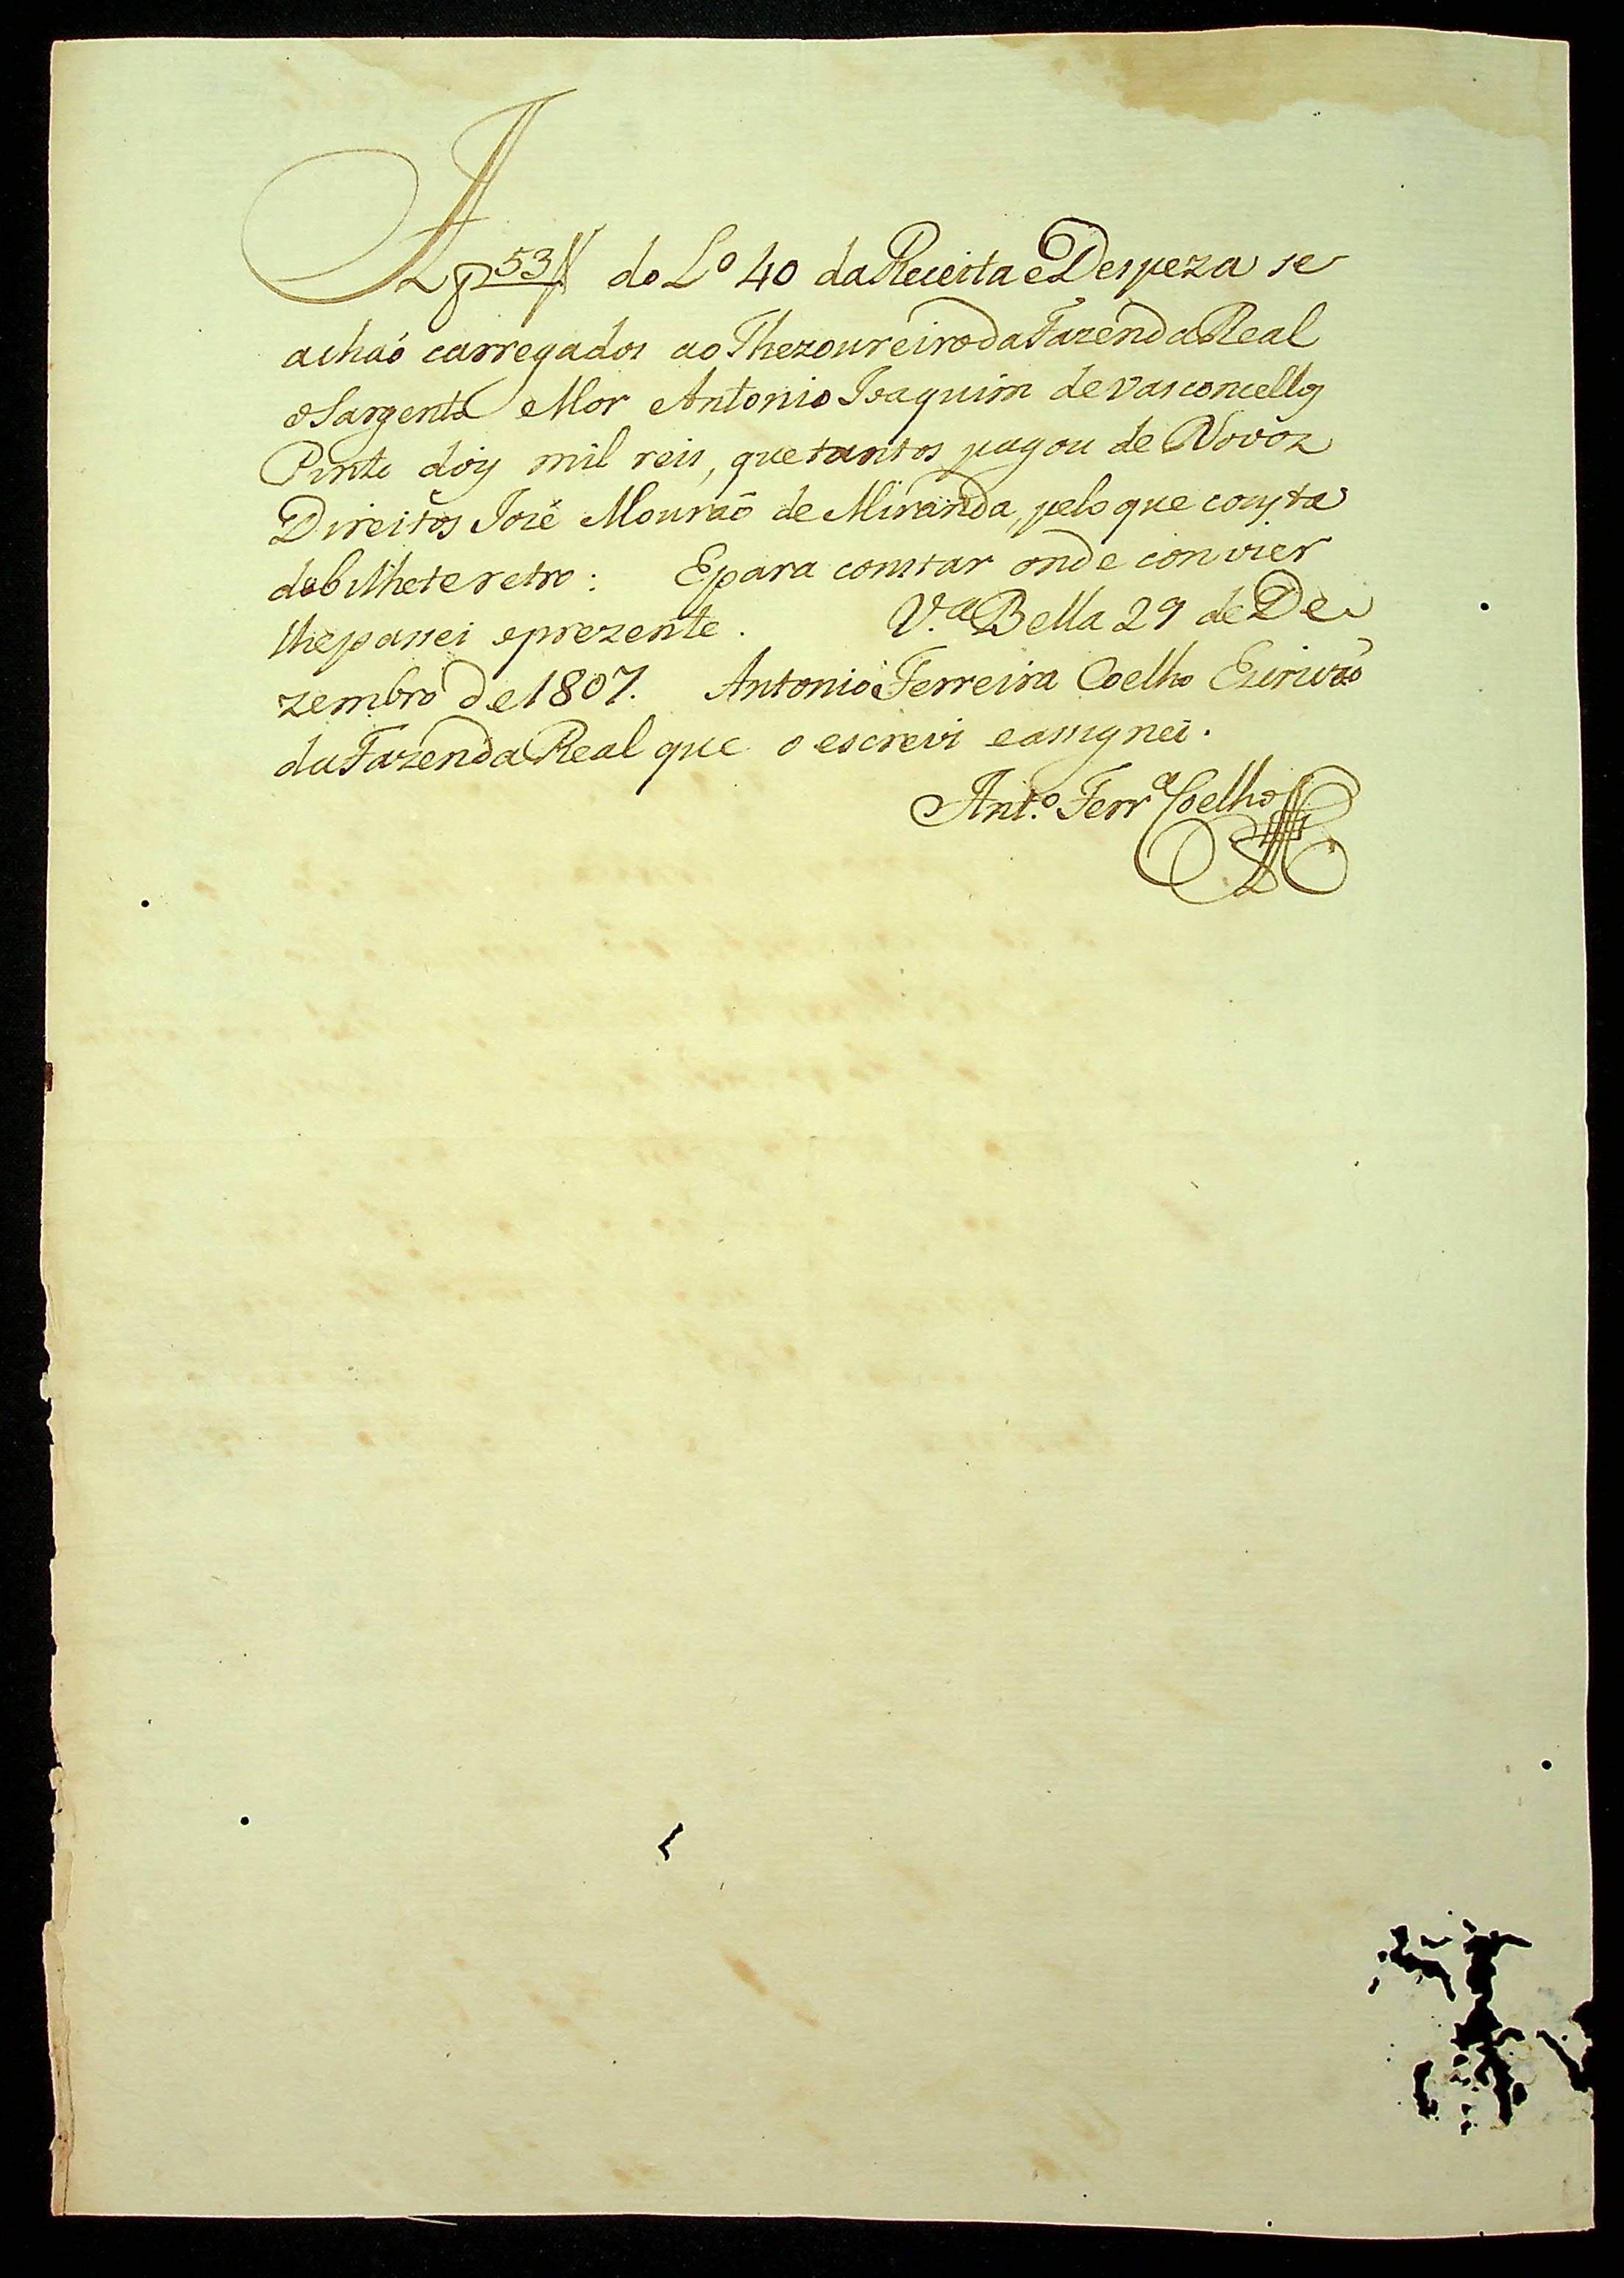 A f 53 V do L.º 40 da Receita e Despeza se
achaõ carregados ao Thezoureiro da Fazenda Real
o Sargento Mor Antonio Joaquim de Vasconcellos
Pinto dois mil reis, que tantos pagou de Novoz
Direitos José Mouraõ de Miranda, pelo que consta
do bilhete retro: E para constar onde convier
lhe passei o prezente. V.ª Bella 29 de De
zembro de 1807. Antonio Ferreira Coelho Escrivaõ
da Fazenda Real que o escrevi e assignei.
Ant.º Ferr.ª Coelho